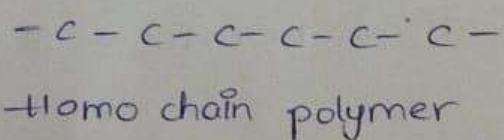 - C - C - C - C - C - C -
Homo chain polymer